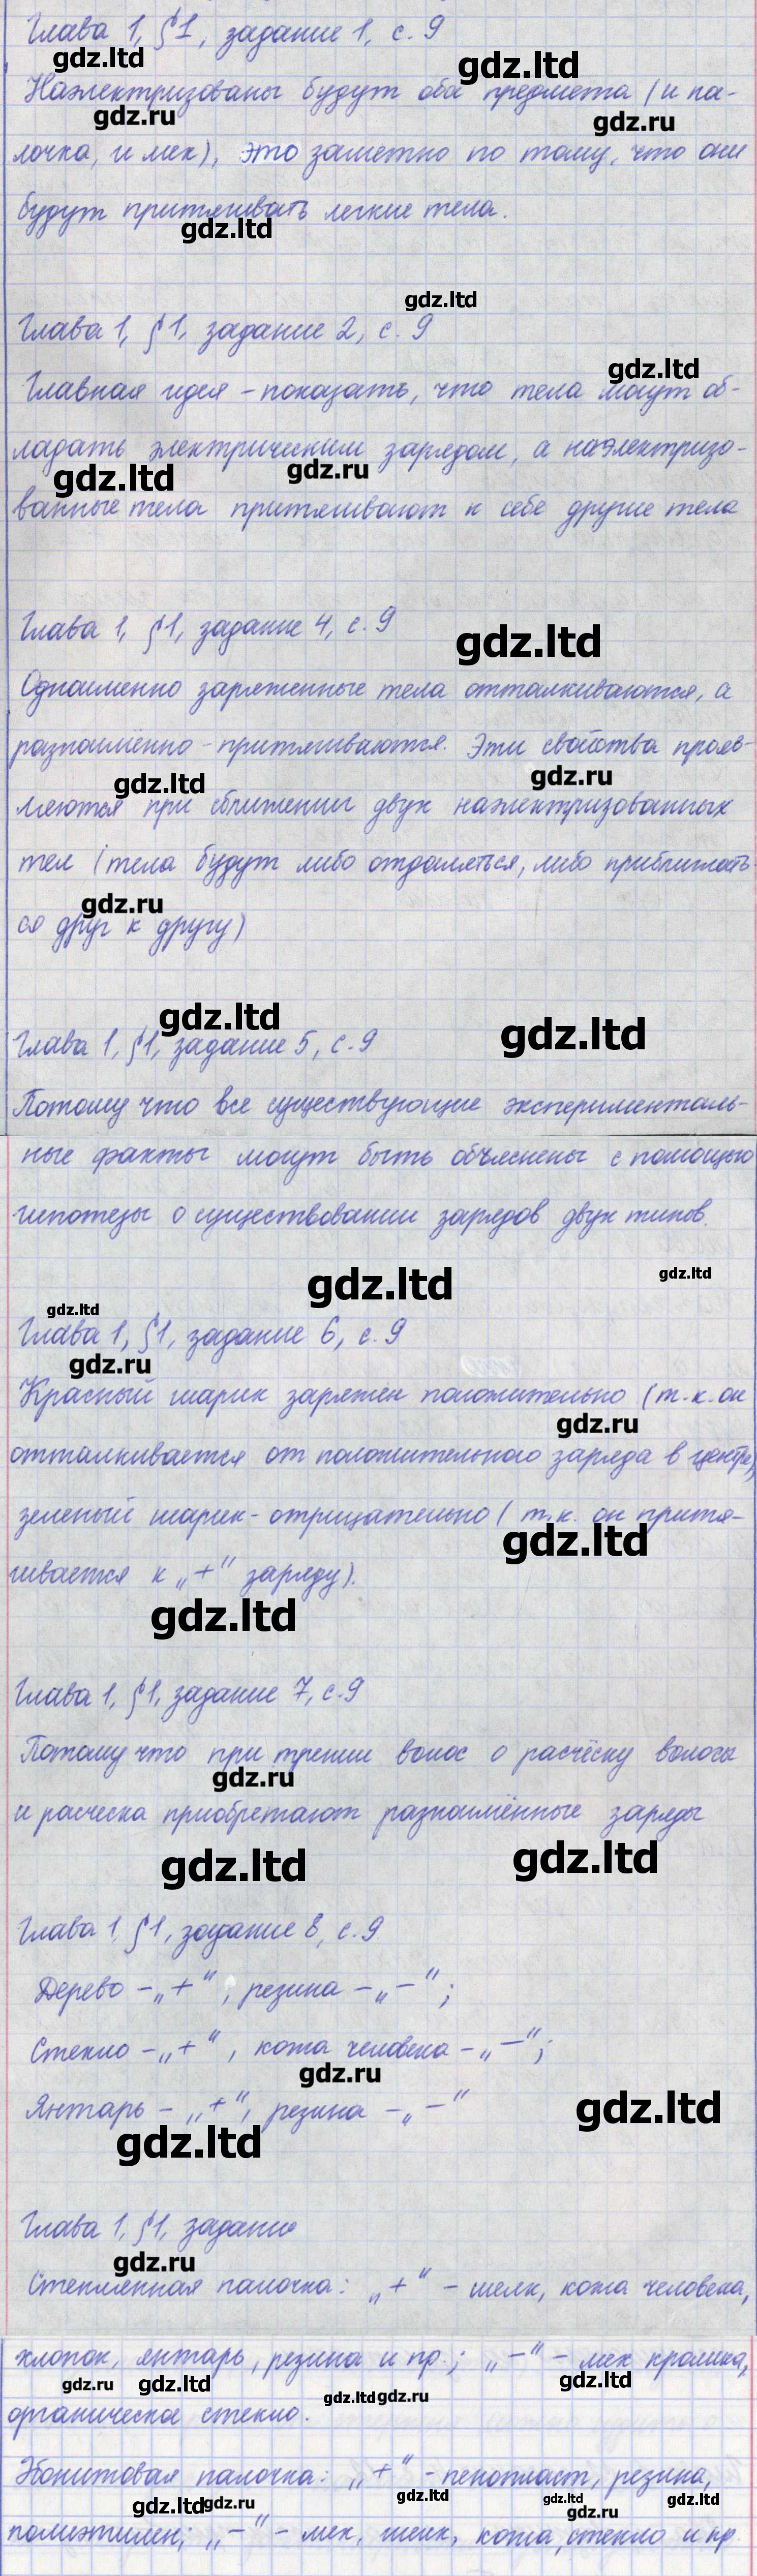 Глава 1, §1, задание 1, с. 9
gdz.ltd gdz.ltd
Наэлектризованы будут оба предмета (и па-
gdz.ru gdz.ru
лочка, и мех), это заметно по тому, что они
будут притягивать легкие тела.
gdz.ltd
gdz.ltd
Глава 1, §1, задание 2, с. 9
gdz.ltd
Главная идея – показать, что тела могут об-
ладать электрическим зарядом, а наэлектризо-
gdz.ltd gdz.ru
ванные тела притягивают к себе другие тела
Глава 1, §1, задание 4, с. 9
gdz.ltd
Одноименно заряженные тела отталкиваются, а
разноименно – притягиваются. Эти свойства прояв-
gdz.ltd gdz.ru
ляются при сближении двух наэлектризованных
тел (тела будут либо отдаляться, либо приближать-
gdz.ru
ся друг к другу)
gdz.ltd gdz.ltd
Глава 1, §1, задание 5, с. 9
Потому что все существующие эксперименталь-
ные факты могут быть объяснены с помощью
гипотезы о существовании зарядов двух типов.
gdz.ltd gdz.ltd
gdz.ltd
Глава 1, §1, задание 6, с. 9
gdz.ru
Красный шарик заряжен положительно (т.к. он
gdz.ru
отталкивается от положительного заряда в центре),
зеленый шарик – отрицательно (т.к. он притя-
gdz.ltd
гивается к „+“ заряду).
gdz.ltd
Глава 1, §1, задание 7, с. 9
Потому что при трении волос о расчёску волосы
gdz.ru
и расческа приобретают разноимённые заряды
gdz.ltd gdz.ltd
Глава 1, §1, задание 8, с. 9
Дерево – „+“, резина – „–“;
Стекло – „+“, кожа человека – „–“;
gdz.ru
Янтарь – „+“, резина – „–“
gdz.ltd
gdz.ltd
Глава 1, §1, задание
gdz.ru
Стеклянная палочка: „+“ – шелк, кожа человека,
хлопок, янтарь, резина и пр.; „–“ – мех кролика,
gdz.ru gdz.ltd gdz.ltd gdz.ru gdz.ltd
органическое стекло.
Эбонитовая палочка: „+“ – пенопласт, резина,
gdz.ltd gdz.ru gdz.ltd gdz.ltd gdz.ru gdz.ltd
полиэтилен; „–“ – мех, шелк, кожа, стекло и пр.